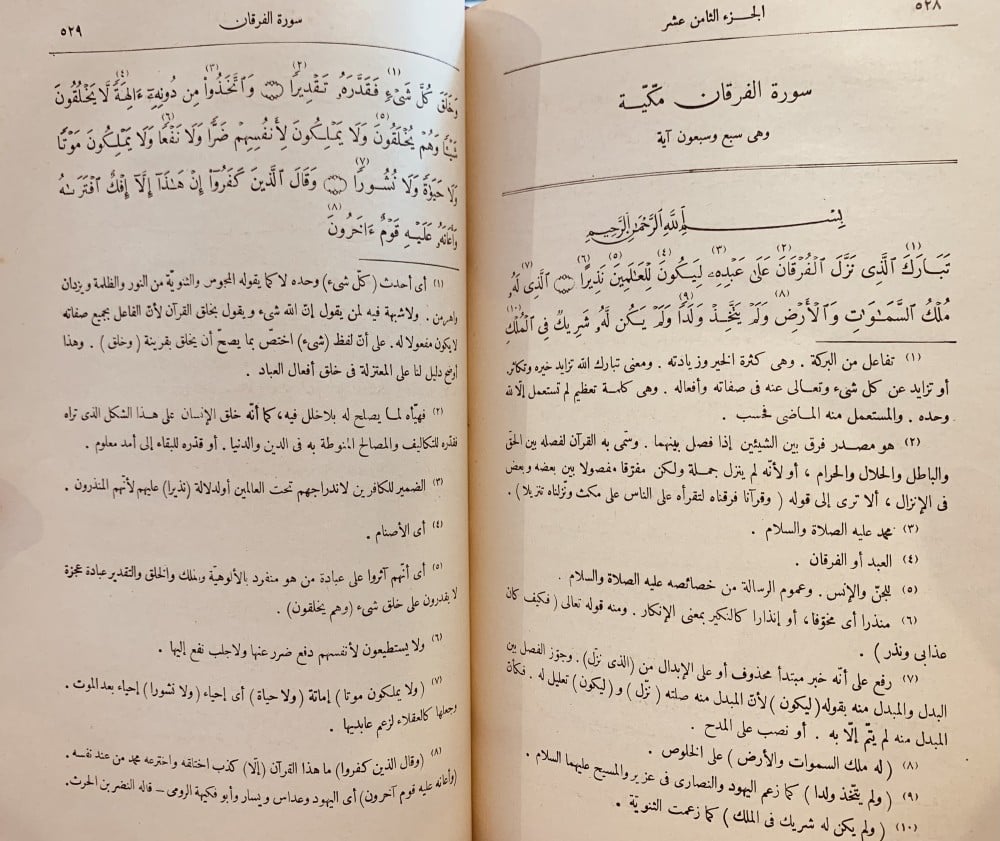 ٥٢٨
الجزء الثامن عشر
سورة الفرقان مكّيّة
وهى سبع وسبعون آية
بِسْمِ اللَّهِ الرَّحْمَٰنِ الرَّحِيمِ
تَبَارَكَ (١) الَّذِى نَزَّلَ الْفُرْقَانَ (٢) عَلَىٰ عَبْدِهِ (٣) لِيَكُونَ (٤) لِلْعَالَمِينَ (٥) نَذِيرًا (٦) الَّذِى لَهُ (٧)
مُلْكُ السَّمَـٰوَٰتِ وَالْأَرْضِ (٨) وَلَمْ يَتَّخِذْ وَلَدًا (٩) وَلَمْ يَكُن لَّهُ شَرِيكٌ فِى الْمُلْكِ (١٠)
(١) تفاعل من البركة . وهى كثرة الخير وزيادته . ومعنى تبارك الله تزايد خيره وتكاثر
أو تزايد عن كل شىء وتعالى عنه فى صفاته وأفعاله . وهى كلمة تعظيم لم تستعمل إلّا لله
وحده . والمستعمل منه الماضى فحسب .
(٢) هو مصدر فرق بين الشيئين إذا فصل بينهما . وسمّى به القرآن لفصله بين الحقّ
والباطل والحلال والحرام ، أو لأنّه لم ينزل جملة ولكن مفرّقا مفصولا بين بعضه وبعض
فى الإنزال ، ألا ترى إلى قوله ( وقرآنا فرقناه لتقرأه على الناس على مكث ونزّلناه تنزيلا ) .
(٣) محمد عليه الصلاة والسلام .
(٤) العبد أو الفرقان .
(٥) للجنّ والإنس . وعموم الرسالة من خصائصه عليه الصلاة والسلام .
(٦) منذرا أى مخوّفا ، أو إنذارا كالنكير بمعنى الإنكار . ومنه قوله تعالى ( فكيف كان
عذابى ونذر ) .
(٧) رفع على أنّه خبر مبتدأ محذوف أو على الإبدال من (الذى نزّل) . وجوّز الفصل بين
البدل والمبدل منه بقوله (ليكون) لأنّ المبدل منه صلته (نزّل) و (ليكون) تعليل له . فكأن
المبدل منه لم يتمّ إلّا به . أو نصب على المدح .
(٨) ( له ملك السموات والأرض ) على الخلوص .
(٩) ( ولم يتّخذ ولدا ) كما زعم اليهود والنصارى فى عزير والمسيح عليهما السلام .
(١٠) ( ولم يكن له شريك فى الملك ) كما زعمت الثنويّة .
سورة الفرقان
٥٢٩
وَخَلَقَ كُلَّ شَىْءٍ (١) فَقَدَّرَهُ تَقْدِيرًا (٢) وَاتَّخَذُوا (٣) مِن دُونِهِ ءَالِهَةً (٤) لَّا يَخْلُقُونَ
شَيْئًا وَهُمْ يُخْلَقُونَ (٥) وَلَا يَمْلِكُونَ لِأَنفُسِهِمْ ضَرًّا وَلَا نَفْعًا (٦) وَلَا يَمْلِكُونَ مَوْتًا
وَلَا حَيَوٰةً وَلَا نُشُورًا (٧) وَقَالَ الَّذِينَ كَفَرُوا إِنْ هَـٰذَا إِلَّا إِفْكٌ افْتَرَىٰهُ
وَأَعَانَهُ عَلَيْهِ قَوْمٌ ءَاخَرُونَ (٨)
(١) أى أحدث (كلّ شىء) وحده لا كما يقوله المجوس والثنويّة من النور والظلمة ويزدان
واهرمن . ولا شبهة فيه لمن يقول إنّ الله شىء ويقول بخلق القرآن لأنّ الفاعل بجميع صفاته
لا يكون مفعولا له . على أنّ لفظ (شىء) اختصّ بما يصحّ أن يخلق بقرينة (وخلق) . وهذا
أوضح دليل لنا على المعتزلة فى خلق أفعال العباد .
(٢) فهيّأه لما يصلح له بلا خلل فيه ، كما أنّه خلق الإنسان على هذا الشكل الذى تراه
فقدّره للتكاليف والمصالح المنوطة به فى الدين والدنيا . أو قدّره للبقاء إلى أمد معلوم .
(٣) الضمير للكافرين لاندراجهم تحت العالمين أو لدلالة (نذيرا) عليهم لأنّهم المنذرون .
(٤) أى الأصنام .
(٥) أى أنّهم آثروا على عبادة من هو منفرد بالألوهيّة والملك والخلق والتقدير عبادة عجزة
لا يقدرون على خلق شىء (وهم يخلقون) .
(٦) ولا يستطيعون لأنفسهم دفع ضرر عنها ولا جلب نفع إليها .
(٧) (ولا يملكون موتا) إماتة (ولا حياة) أى إحياء (ولا نشورا) إحياء بعد الموت .
وجعلها كالعقلاء لزعم عابديها .
(٨) (وقال الذين كفروا) ما هذا القرآن (إلّا) كذب اختلقه واخترعه محمد من عند نفسه .
(وأعانه عليه قوم آخرون) أى اليهود وعداس ويسار وأبو فكيهة الرومى – قاله النضر بن الحرث .